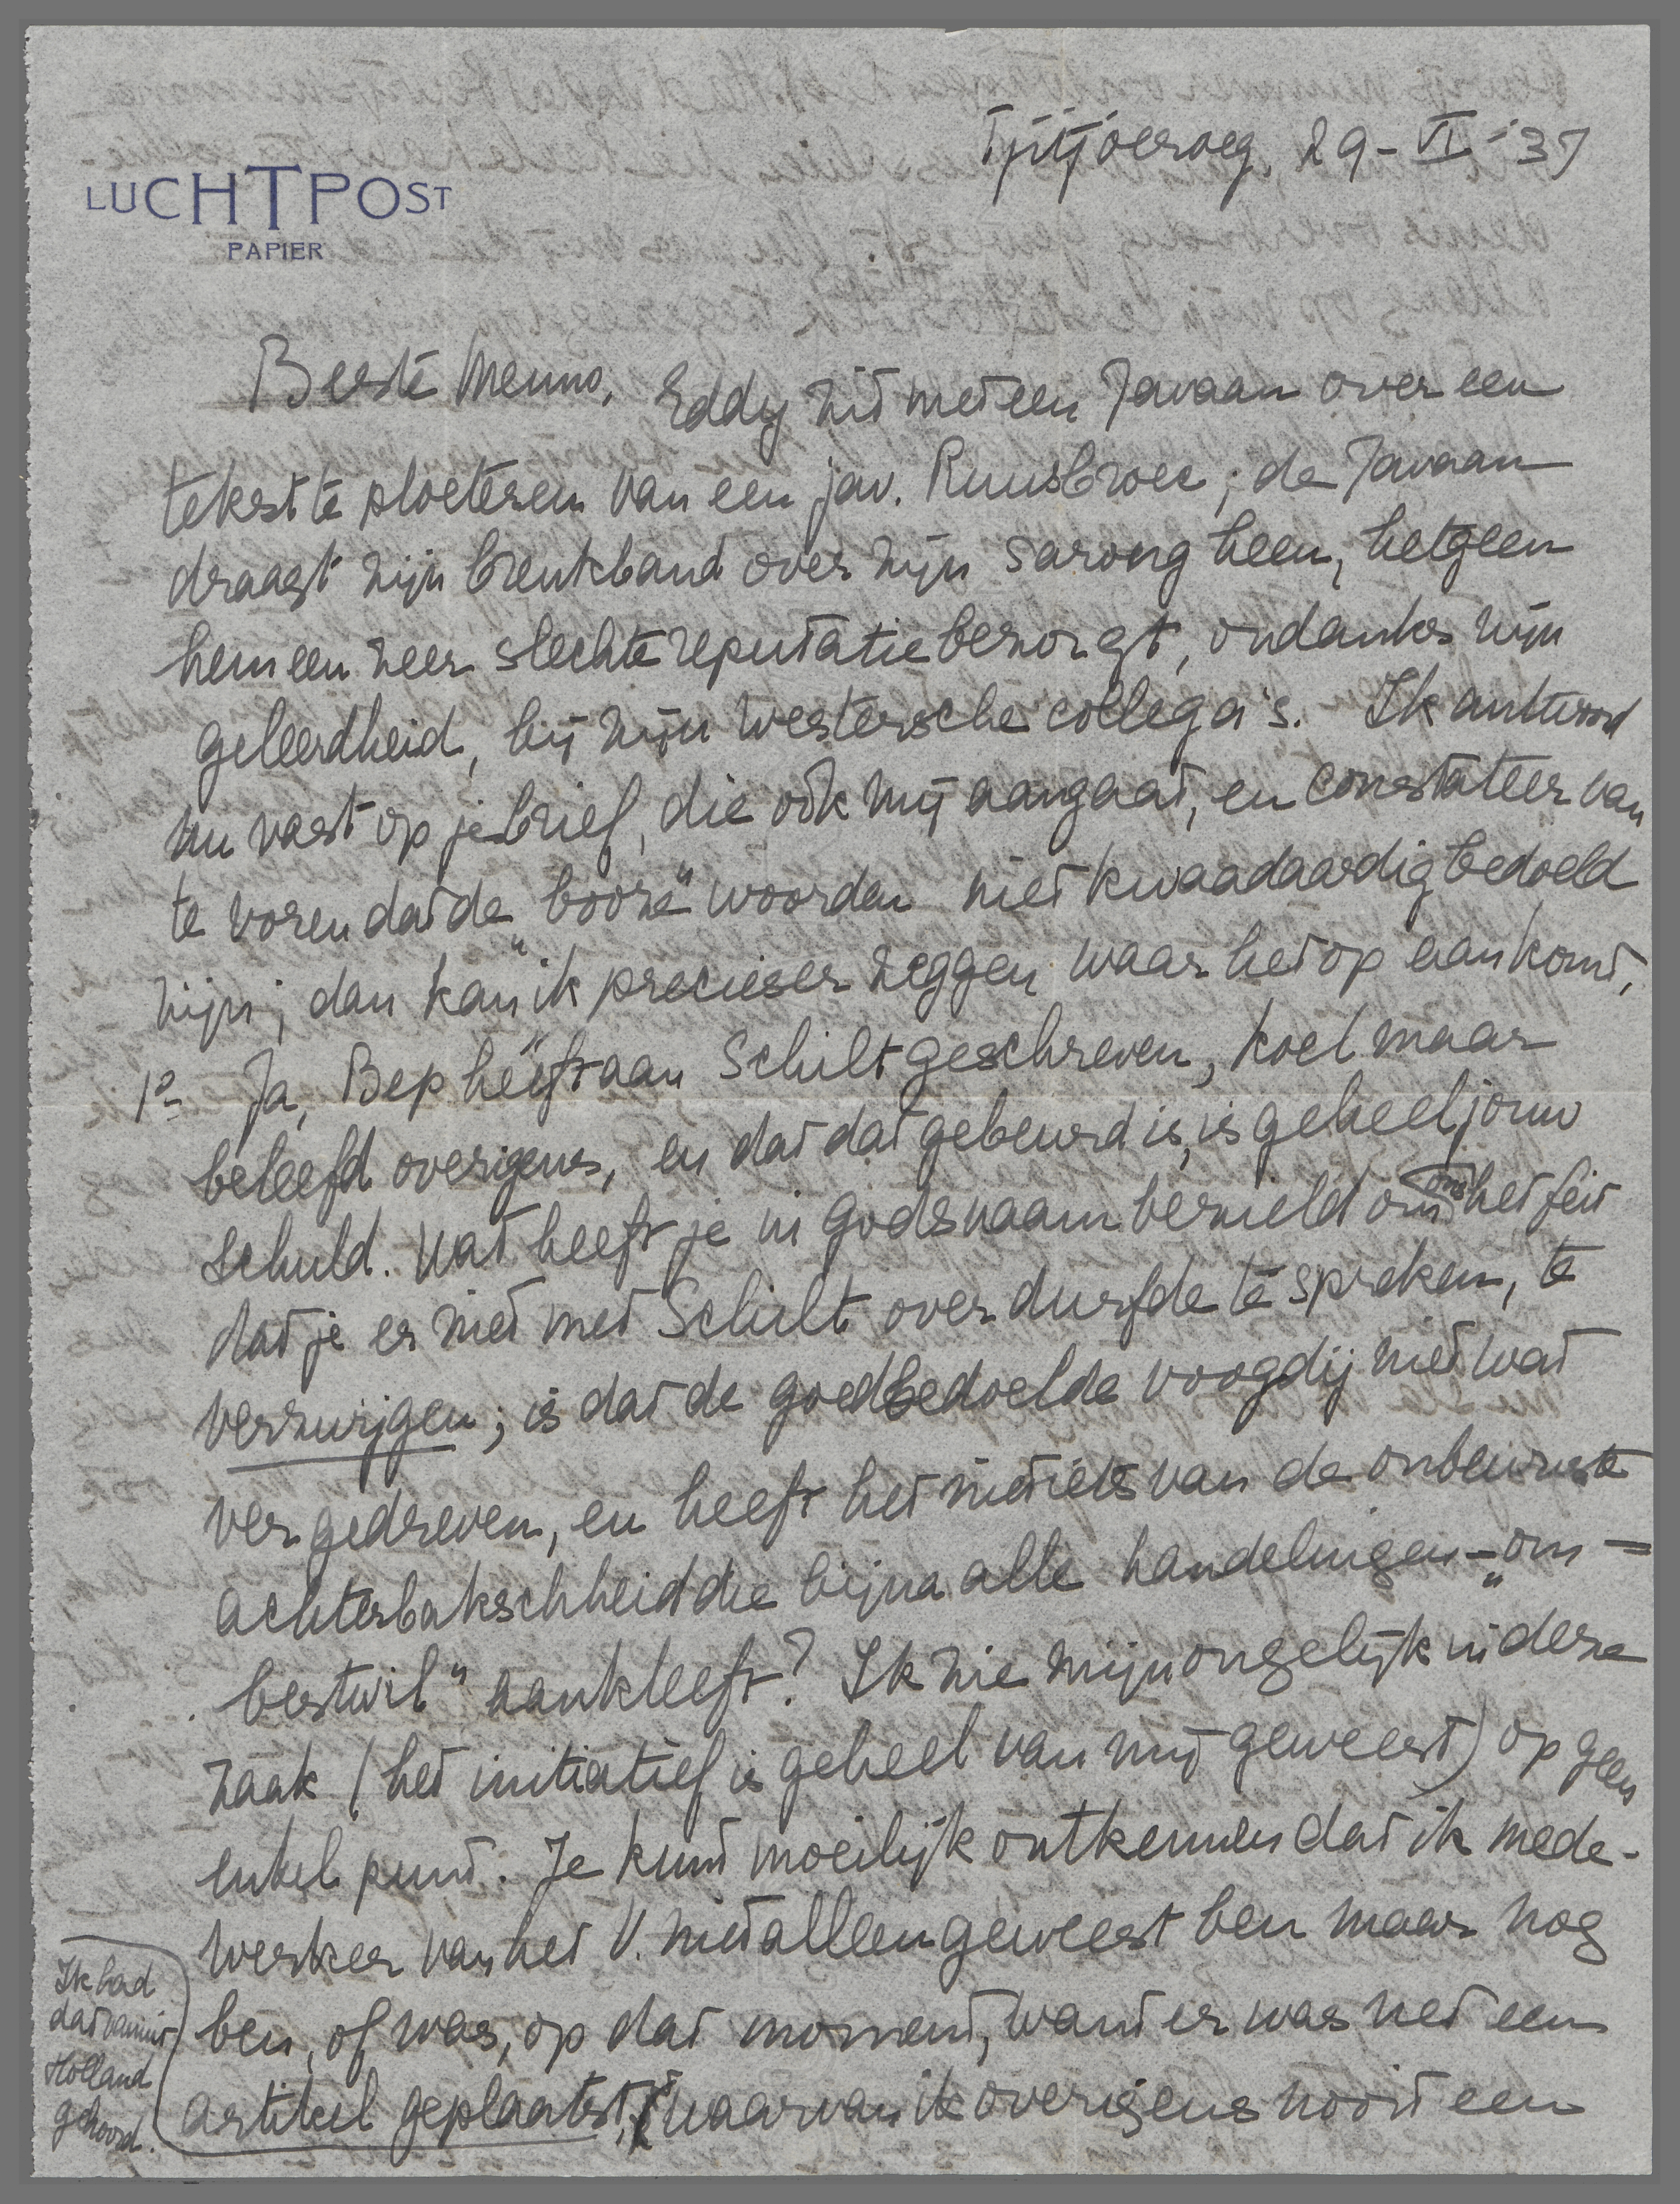 LUCHTPOST
PAPIER
Tjitjoeroeg, 29-VI-'37
Beste Menno, Eddy zit met een Javaan over een
tekst te ploeteren van een jav. Ruusbroec; de Javaan
draagt zijn breukband over zijn sarong heen, hetgeen
hem een zeer slechte reputatie bezorgt, ondanks zijn
geleerdheid, bij zijn westersche collega's. Ik antwoord
nu vast op je brief, die ook mij aangaat, en constateer van
te voren dat de „booze" woorden niet kwaadaardig bedoeld
zijn; dan kan ik precieser zeggen waar het op aankomt.
1º Ja, Bep heeft aan Schilt geschreven, koel maar
beleefd overigens, en dat dat gebeurd is, is geheel jouw
schuld. Wat heeft je in godsnaam bezield om ons het feit
dat je er niet met Schilt over durfde te spreken, te
verzwijgen; is dat de goedbedoelde voogdij niet wat
ver gedreven, en heeft het niet iets van de onbewuste
achterbakschheid die bijna alle handelingen - „om -
bestwil" aankleeft? Ik zie mijn ongelijk in deze
zaak (het initiatief is geheel van mij geweest) op geen
enkel punt. Je kunt moeilijk ontkennen dat ik mede-
werker van het V. niet alleen geweest ben maar nog
ben, of was, op dat moment, want er was net een
artikel geplaatst, waarvan ik overigens nooit een
Ik had
dat vanuit
Holland
gehoord.